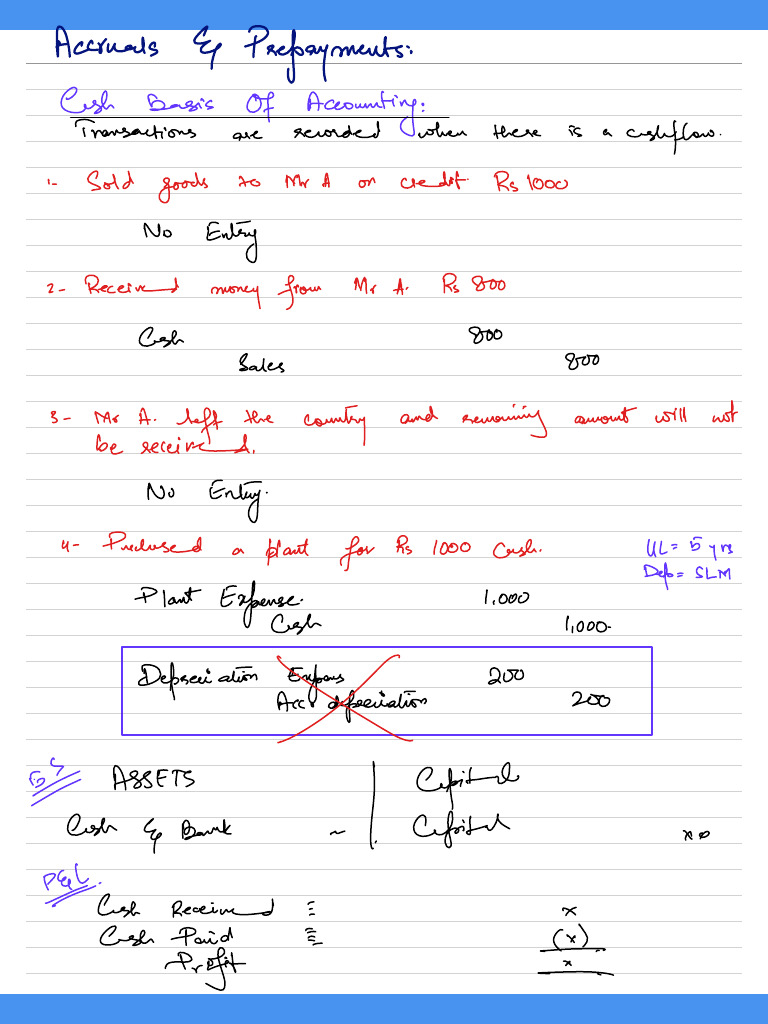 Accruals & Prepayments:
Cash Basis Of Accounting:
Transactions are recorded when there is a cashflow.
1- Sold goods to Mr A on credit Rs 1000
No Entry
2- Received money from Mr A. Rs 800
Cash 800
Sales 800
3- Mr A. left the country and remaining amount will not
be received.
No Entry.
4- Puchased a plant for Rs 1000 Cash. UL = 5 yrs
Dep = SLM
Plant Expense. 1,000
Cash 1,000.
Depreciation Expens 200
Acc depreciation 200
BS ASSETS Capital
Cash & Bank ~ Capital xo
P&L.
Cash Received x
Cash Paid (x)
Profit x